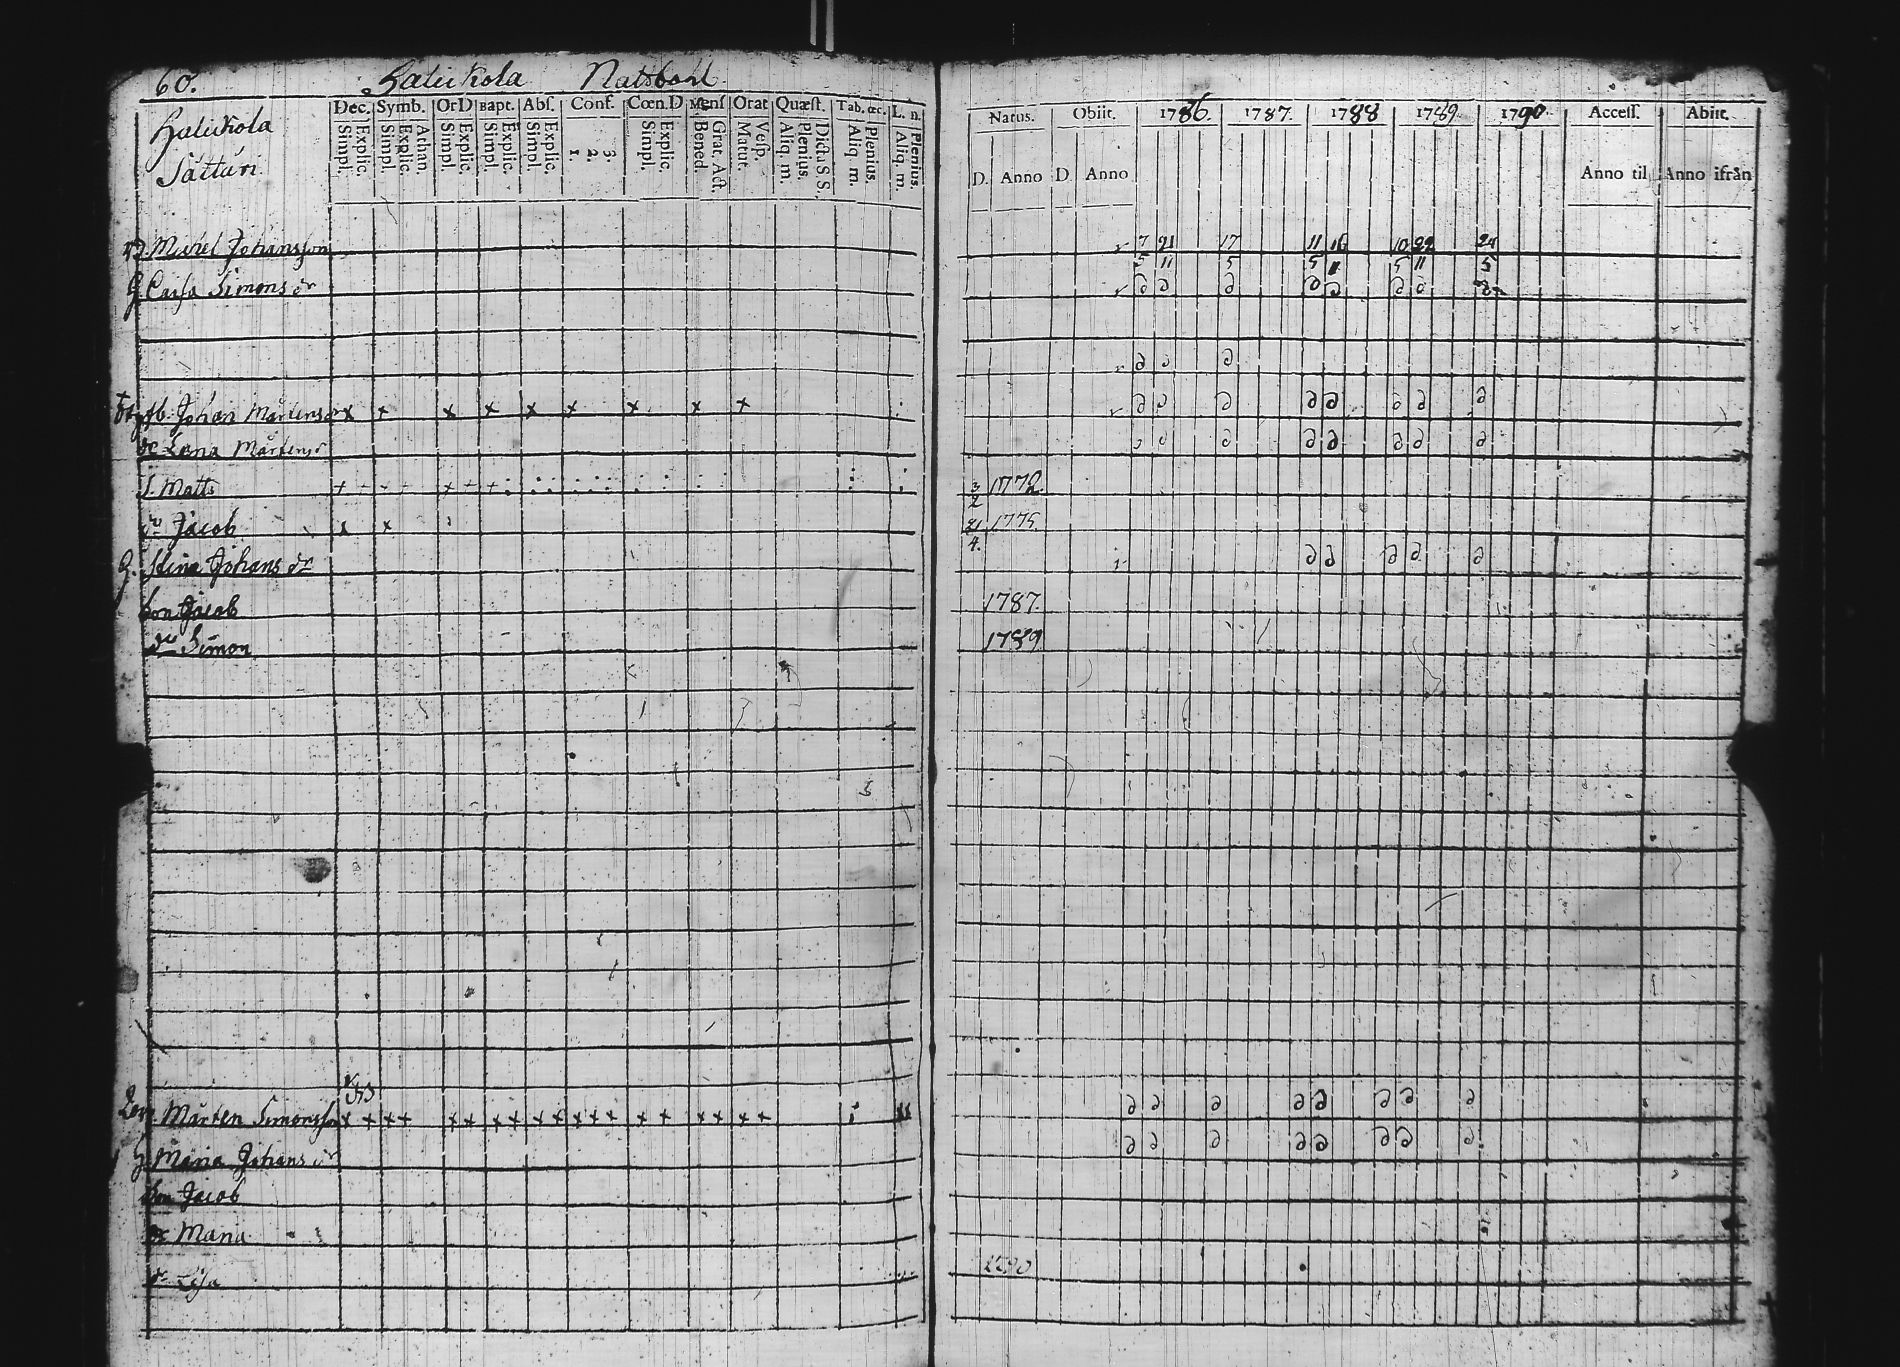 60. Natsbohl
Dec. Symb. OrD Bapt. Abs. Conf. Cœn.D Mens Orat Quæst. Tab. œc. L. n.
Simpl. Explic. Simpl. Explic. Athan. Simpl. Explic. Simpl. Explic. Simpl. Explic. 1. 2. 3. Simpl. Explic. Bened. Grat. Act. Matut. Vesp. Aliq. m. Plenius. Dict. S. S. Aliq. m. Plenius. Aliq. m. Plenius.
Natus. Obiit. 1786. 1787. 1788 1789. 1790. Access. Abiit.
D. Anno D Anno Anno til Anno ifrån
Michel Johansson 7 21 17 11 16 10 22 24
5 11 5 5 11 5 11 5
Caisa Simons dr
Johan Mårtenss x + x x x x x x x
Lena Mårtens dr
S. Matts 3 1772.
2
dn Jacob x x 21 1775.
4.
Stina Johans dr
son Jacob 1787.
dn Simon 1789
Mårten Simonsson x + + + x x x x x x x x x x x x x x x
Maria Johans dr
son Jacob
Maria
Lisa 1790